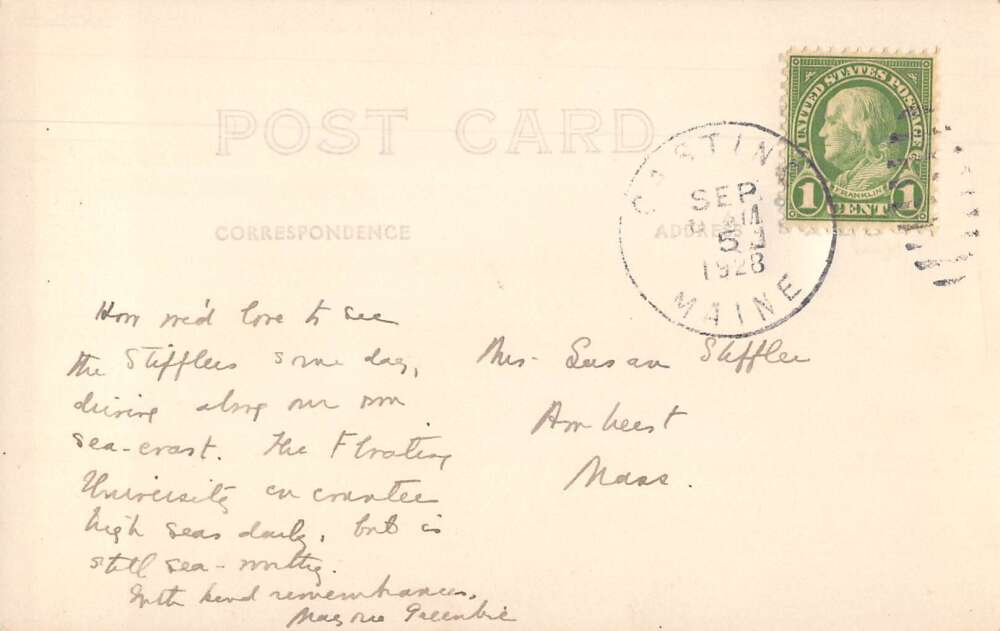 POST CARD
CORRESPONDENCE
ADDRESS
UNITED STATES POSTAGE
FRANKLIN
1 CENT 1
CASTINE
SEP
5
1928
MAINE
How we'd love to see
the Stifflers some day,
driving along our own
sea-coast. The Floating
University encounters
high seas daily, but is
still sea-worthy.
With kind remembrances,
Marjorie Greenbie
Mrs. Susan Stiffler
Amherst
Mass.